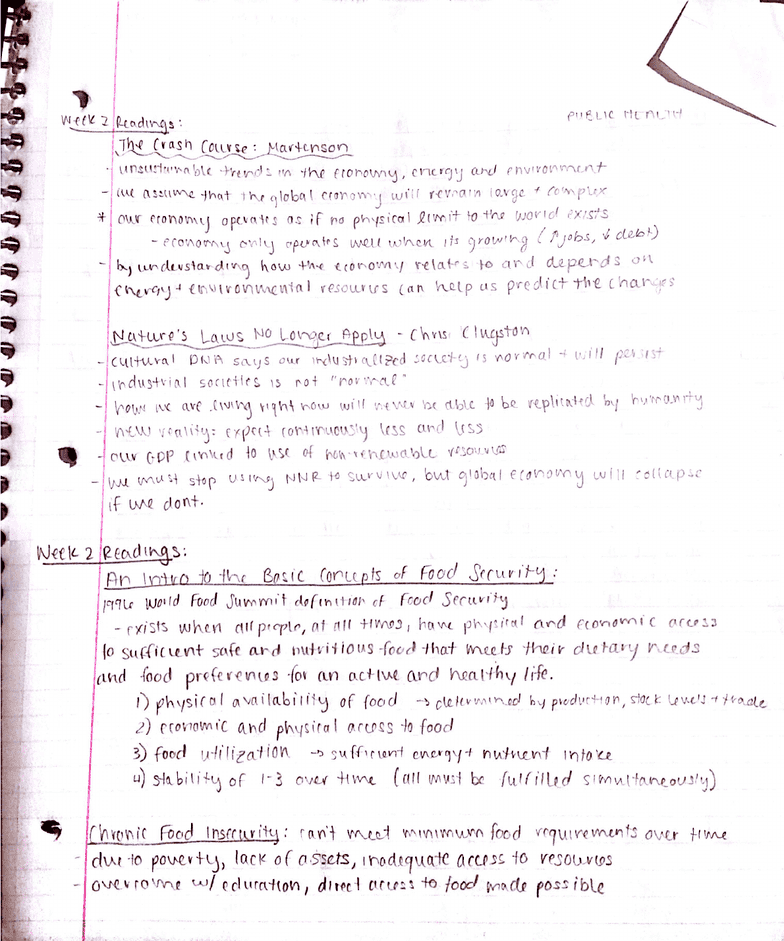 PUBLIC HEALTH
Week 2 Readings:
The Crash Course: Martenson
- unsustainable trends in the economy, energy and environment
- we assume that the global economy will remain large + complex
* our economy operates as if no physical limit to the world exists
- economy only operates well when its growing (↑jobs, ↓debt)
- by understanding how the economy relates to and depends on
energy + environmental resources can help us predict the changes
Nature's Laws No Longer Apply - Chris Clugston
- cultural DNA says our industrialized society is normal + will persist
- industrial societies is not "normal"
- how we are living right now will never be able to be replicated by humanity
- new reality: expect continuously less and less
- our GDP linked to use of non-renewable resources
- we must stop using NNR to survive, but global economy will collapse
if we dont.
Week 2 Readings:
An Intro to the Basic Concepts of Food Security:
1996 World Food Summit definition of Food Security
- exists when all people, at all times, have physical and economic access
to sufficient safe and nutritious food that meets their dietary needs
and food preferences for an active and healthy life.
1) physical availability of food → determined by production, stock levels + trade
2) economic and physical access to food
3) food utilization → sufficient energy + nutrient intake
4) stability of 1-3 over time (all must be fulfilled simultaneously)
Chronic Food Insecurity: can't meet minimum food requirements over time
- due to poverty, lack of assets, inadequate access to resources
- overcome w/ education, direct access to food made possible